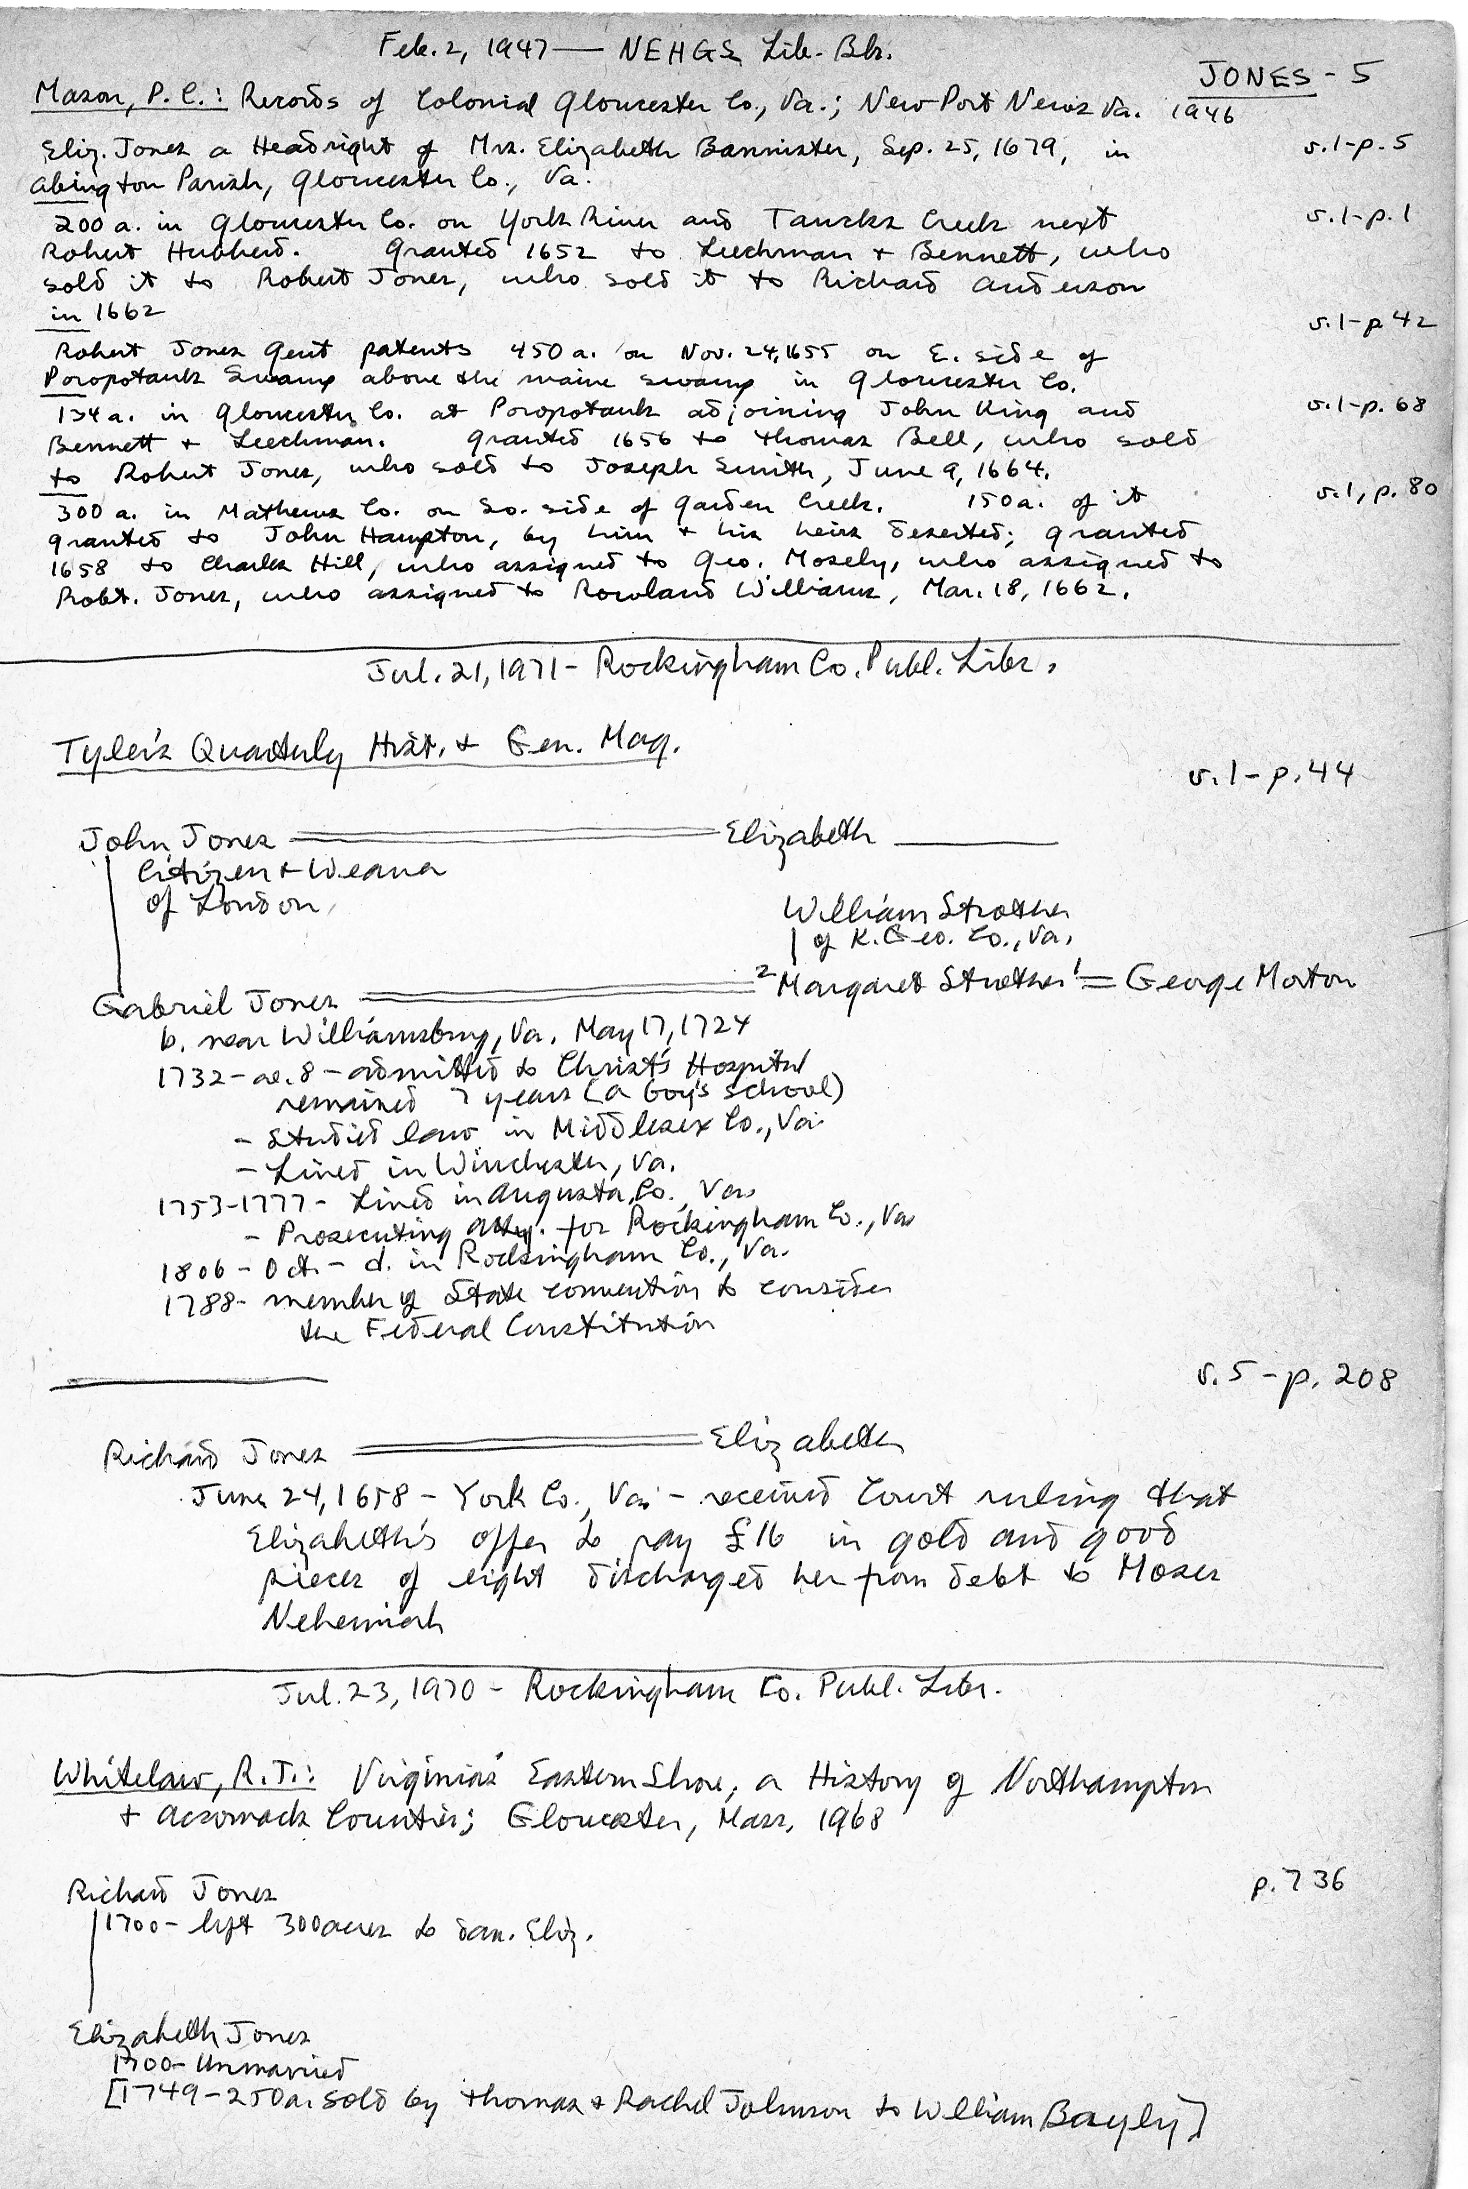 Feb. 2, 1947 — NEHGS Lib. Bkr.
JONES - 5
Mason, P. C.: Records of Colonial Gloucester Co., Va.; New Port News Va. 1946
Eliz. Jones a Headright of Mrs. Elizabeth Bannister, Sep. 25, 1679, in
v.1-p.5
Abington Parish, Gloucester Co., Va.
200 a. in Gloucester Co. on York River and Tancks Creek next
v.1-p.1
Robert Hubberd. Granted 1652 to Leechman + Bennett, who
sold it to Robert Jones, who sold it to Richard Anderson
in 1662
v.1-p.42
Robert Jones Gent patents 450 a. on Nov. 24, 1655 on E. side of
Poropotank Swamp above the maine swamp in Gloucester Co.
134 a. in Gloucester Co. at Poropotank adjoining John King and
v.1-p.68
Bennett + Leechman. Granted 1656 to Thomas Bell, who sold
to Robert Jones, who sold to Joseph Smith, June 9, 1664.
300 a. in Mathews Co. on So. side of Garden Creek. 150 a. of it
v.1, p.80
granted to John Hampton, by him + his heirs deserted; granted
1658 to Charles Hill, who assigned to Geo. Mosely, who assigned to
Robt. Jones, who assigned to Rowland Williams, Mar. 18, 1662.
Jul. 21, 1971 - Rockingham Co. Publ. Libr.
Tyler's Quarterly Hist. + Gen. Mag.
v.1 - p.44
John Jones Elizabeth
Citizen + Weaver
of London
William Strother
of K. Geo. Co., Va.
Gabriel Jones 2 Margaret Strother 1 = George Morton
b. near Williamsburg, Va. May 17, 1724
1732 - ae. 8 - admitted to Christ's Hospital
remained 7 years (a boy's school)
- Studied law in Middlesex Co., Va.
- Lived in Winchester, Va.
1753-1777 - Lived in Augusta Co., Va.
- Prosecuting Atty. for Rockingham Co., Va
1806 - Oct. - d. in Rockingham Co., Va.
1788 - member of State convention to consider
the Federal Constitution
v.5 - p.208
Richard Jones Elizabeth
June 24, 1658 - York Co., Va. - received Court ruling that
Elizabeth's offer to pay £16 in gold and good
pieces of eight discharged her from debt to Moses
Nehemiah
Jul. 23, 1970 - Rockingham Co. Publ. Libr.
Whitelaw, R.T.: Virginia's Eastern Shore; a History of Northampton
+ Accomack Counties; Gloucester, Mass, 1968
Richard Jones
p.736
1700 - left 300 acres to dau. Eliz.
Elizabeth Jones
1700 - Unmarried
[1749 - 250 a. sold by Thomas + Rachel Johnson to William Bayly]